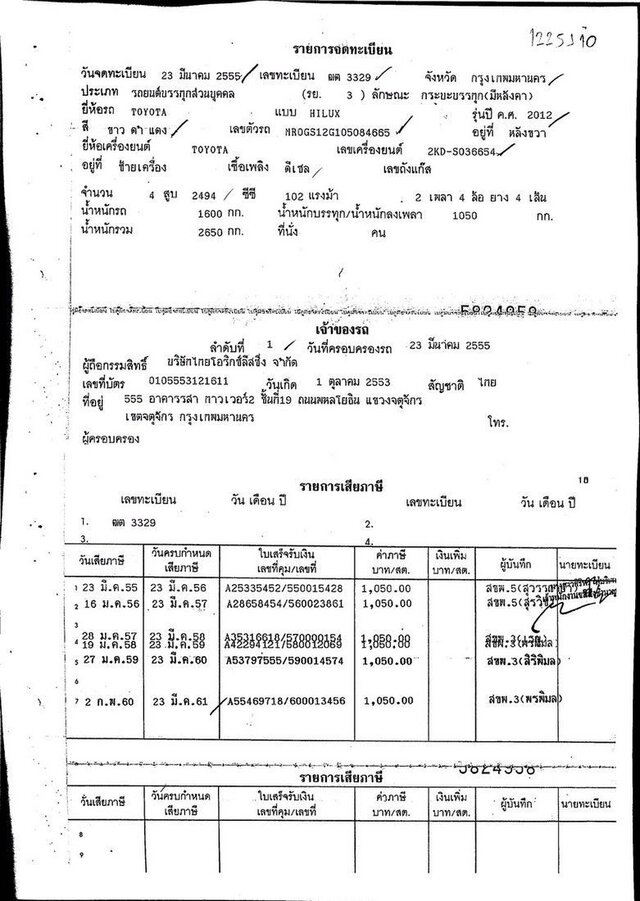 รายการจดทะเบียน
วันจดทะเบียน 23 มีนาคม 2555 เลขทะเบียน ฒต 3329 จังหวัด กรุงเทพมหานคร
ประเภท รถยนต์บรรทุกส่วนบุคคล (รย. 3 ) ลักษณะ กระบะบรรทุก(มีหลังคา)
ยี่ห้อรถ TOYOTA แบบ HILUX รุ่นปี ค.ศ. 2012
สี ขาว ดำ แดง เลขตัวรถ MR0GS12G105084665 อยู่ที่ หลังขวา
ยี่ห้อเครื่องยนต์ TOYOTA เลขเครื่องยนต์ 2KD-S036654
อยู่ที่ ซ้ายเครื่อง เชื้อเพลิง ดีเซล เลขถังแก๊ส
จำนวน 4 สูบ 2494 ซีซี 102 แรงม้า 2 เพลา 4 ล้อ ยาง 4 เส้น
น้ำหนักรถ 1600 กก. น้ำหนักบรรทุก/น้ำหนักลงเพลา 1050 กก.
น้ำหนักรวม 2650 กก. ที่นั่ง คน
เจ้าของรถ
ลำดับที่ 1 วันที่ครอบครองรถ 23 มีนาคม 2555
ผู้ถือกรรมสิทธิ์ บริษัทไทยโอริกซ์ลีสซิ่ง จำกัด
เลขที่บัตร 0105553121611 วันเกิด 1 ตุลาคม 2553 สัญชาติ ไทย
ที่อยู่ 555 อาคารรสา ทาวเวอร์2 ชั้นที่19 ถนนพหลโยธิน แขวงจตุจักร
เขตจตุจักร กรุงเทพมหานคร โทร.
ผู้ครอบครอง
18
รายการเสียภาษี
เลขทะเบียน วัน เดือน ปี เลขทะเบียน วัน เดือน ปี
1. ฒต 3329 2.
3. 4.
วันเสียภาษี วันครบกำหนดเสียภาษี ใบเสร็จรับเงิน เลขที่คุม/เลขที่ ค่าภาษี บาท/สต. เงินเพิ่ม บาท/สต. ผู้บันทึก นายทะเบียน
1 23 มี.ค.55 23 มี.ค.56 A25335452/550015428 1,050.00
2 16 ม.ค.56 23 มี.ค.57 A28658454/560023861 1,050.00
3 28 ม.ค.57 23 มี.ค.58 A35316618/570000154 1,050.00
4 19 ม.ค.58 23 มี.ค.59 A42294121/580012069 1,050.00
5 27 ม.ค.59 23 มี.ค.60 A53797555/590014574 1,050.00 สขพ.3(สิริพิมล)
6
7 2 ก.พ.60 23 มี.ค.61 A55469718/600013456 1,050.00 สขพ.3(พรพิมล)
รายการเสียภาษี
วันเสียภาษี วันครบกำหนดเสียภาษี ใบเสร็จรับเงิน เลขที่คุม/เลขที่ ค่าภาษี บาท/สต. เงินเพิ่ม บาท/สต. ผู้บันทึก นายทะเบียน
8
9